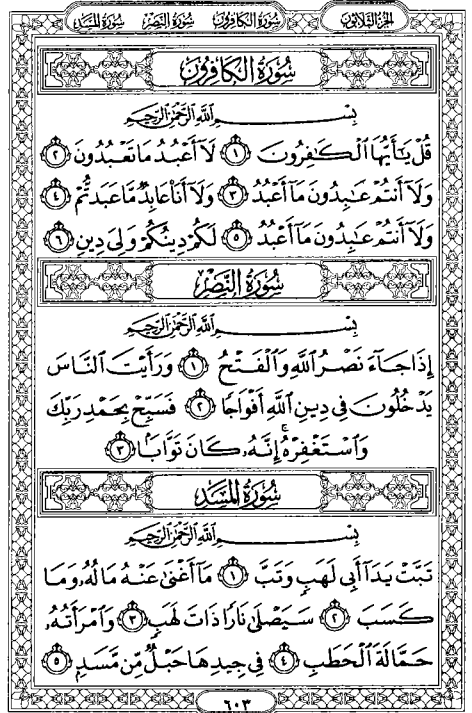 الجزء الثلاثون سورة الكافرون سورة النصر سورة المسد
سُورَةُ الكَافِرُونَ
بِسْمِ اللَّهِ الرَّحْمَٰنِ الرَّحِيمِ
قُلْ يَٰٓأَيُّهَا ٱلْكَٰفِرُونَ ١ لَآ أَعْبُدُ مَا تَعْبُدُونَ ٢
وَلَآ أَنتُمْ عَٰبِدُونَ مَآ أَعْبُدُ ٣ وَلَآ أَنَا۠ عَابِدٌ مَّا عَبَدتُّمْ ٤
وَلَآ أَنتُمْ عَٰبِدُونَ مَآ أَعْبُدُ ٥ لَكُمْ دِينُكُمْ وَلِيَ دِينِ ٦
سُورَةُ النَّصْرِ
بِسْمِ اللَّهِ الرَّحْمَٰنِ الرَّحِيمِ
إِذَا جَآءَ نَصْرُ ٱللَّهِ وَٱلْفَتْحُ ١ وَرَأَيْتَ ٱلنَّاسَ
يَدْخُلُونَ فِي دِينِ ٱللَّهِ أَفْوَاجًا ٢ فَسَبِّحْ بِحَمْدِ رَبِّكَ
وَٱسْتَغْفِرْهُ ۚ إِنَّهُۥ كَانَ تَوَّابًۢا ٣
سُورَةُ المَسَدِ
بِسْمِ اللَّهِ الرَّحْمَٰنِ الرَّحِيمِ
تَبَّتْ يَدَآ أَبِي لَهَبٍ وَتَبَّ ١ مَآ أَغْنَىٰ عَنْهُ مَالُهُۥ وَمَا
كَسَبَ ٢ سَيَصْلَىٰ نَارًا ذَاتَ لَهَبٍ ٣ وَٱمْرَأَتُهُۥ
حَمَّالَةَ ٱلْحَطَبِ ٤ فِي جِيدِهَا حَبْلٌ مِّن مَّسَدٍۭ ٥
٦٠٣